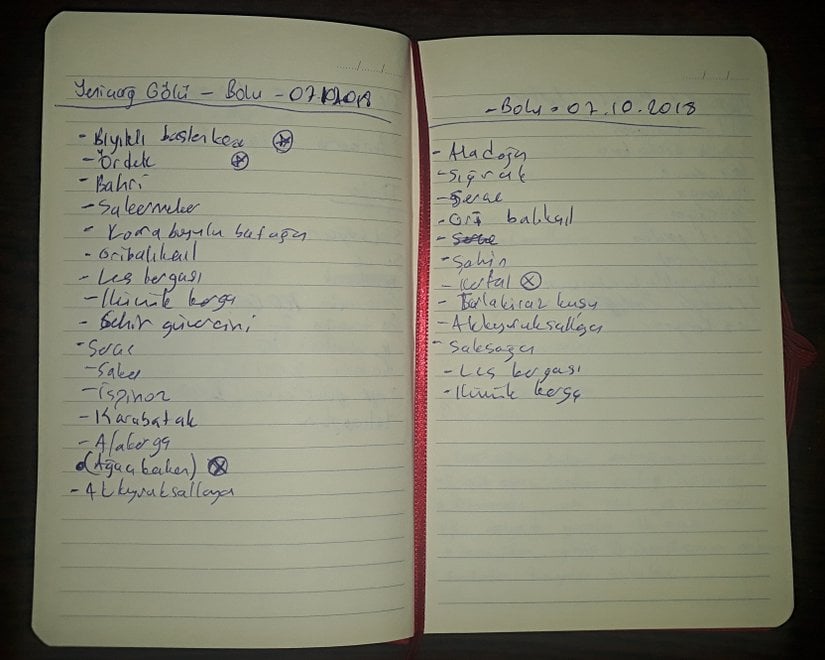 Yeniçağ Gölü - Bolu - 07.10.2018
- Bıyıklı baştankara
- Ördek
- Bahri
- Sakarmeke
- Kara boyunlu batağan
- Gribalıkçıl
- Leş kargası
- Küçük karga
- Şehir güvercini
- Serçe
- Saka
- İspinoz
- Karabatak
- Alakarga
(Ağaçkakan)
- Akkuyruksallayan
- Bolu - 07.10.2018
- Aladoğan
- Sığırcık
- Serçe
- Gri balıkçıl
- Şahin
- Kartal
- Akkuyruksallayan
- Saksağan
- Leş kargası
- Küçük karga